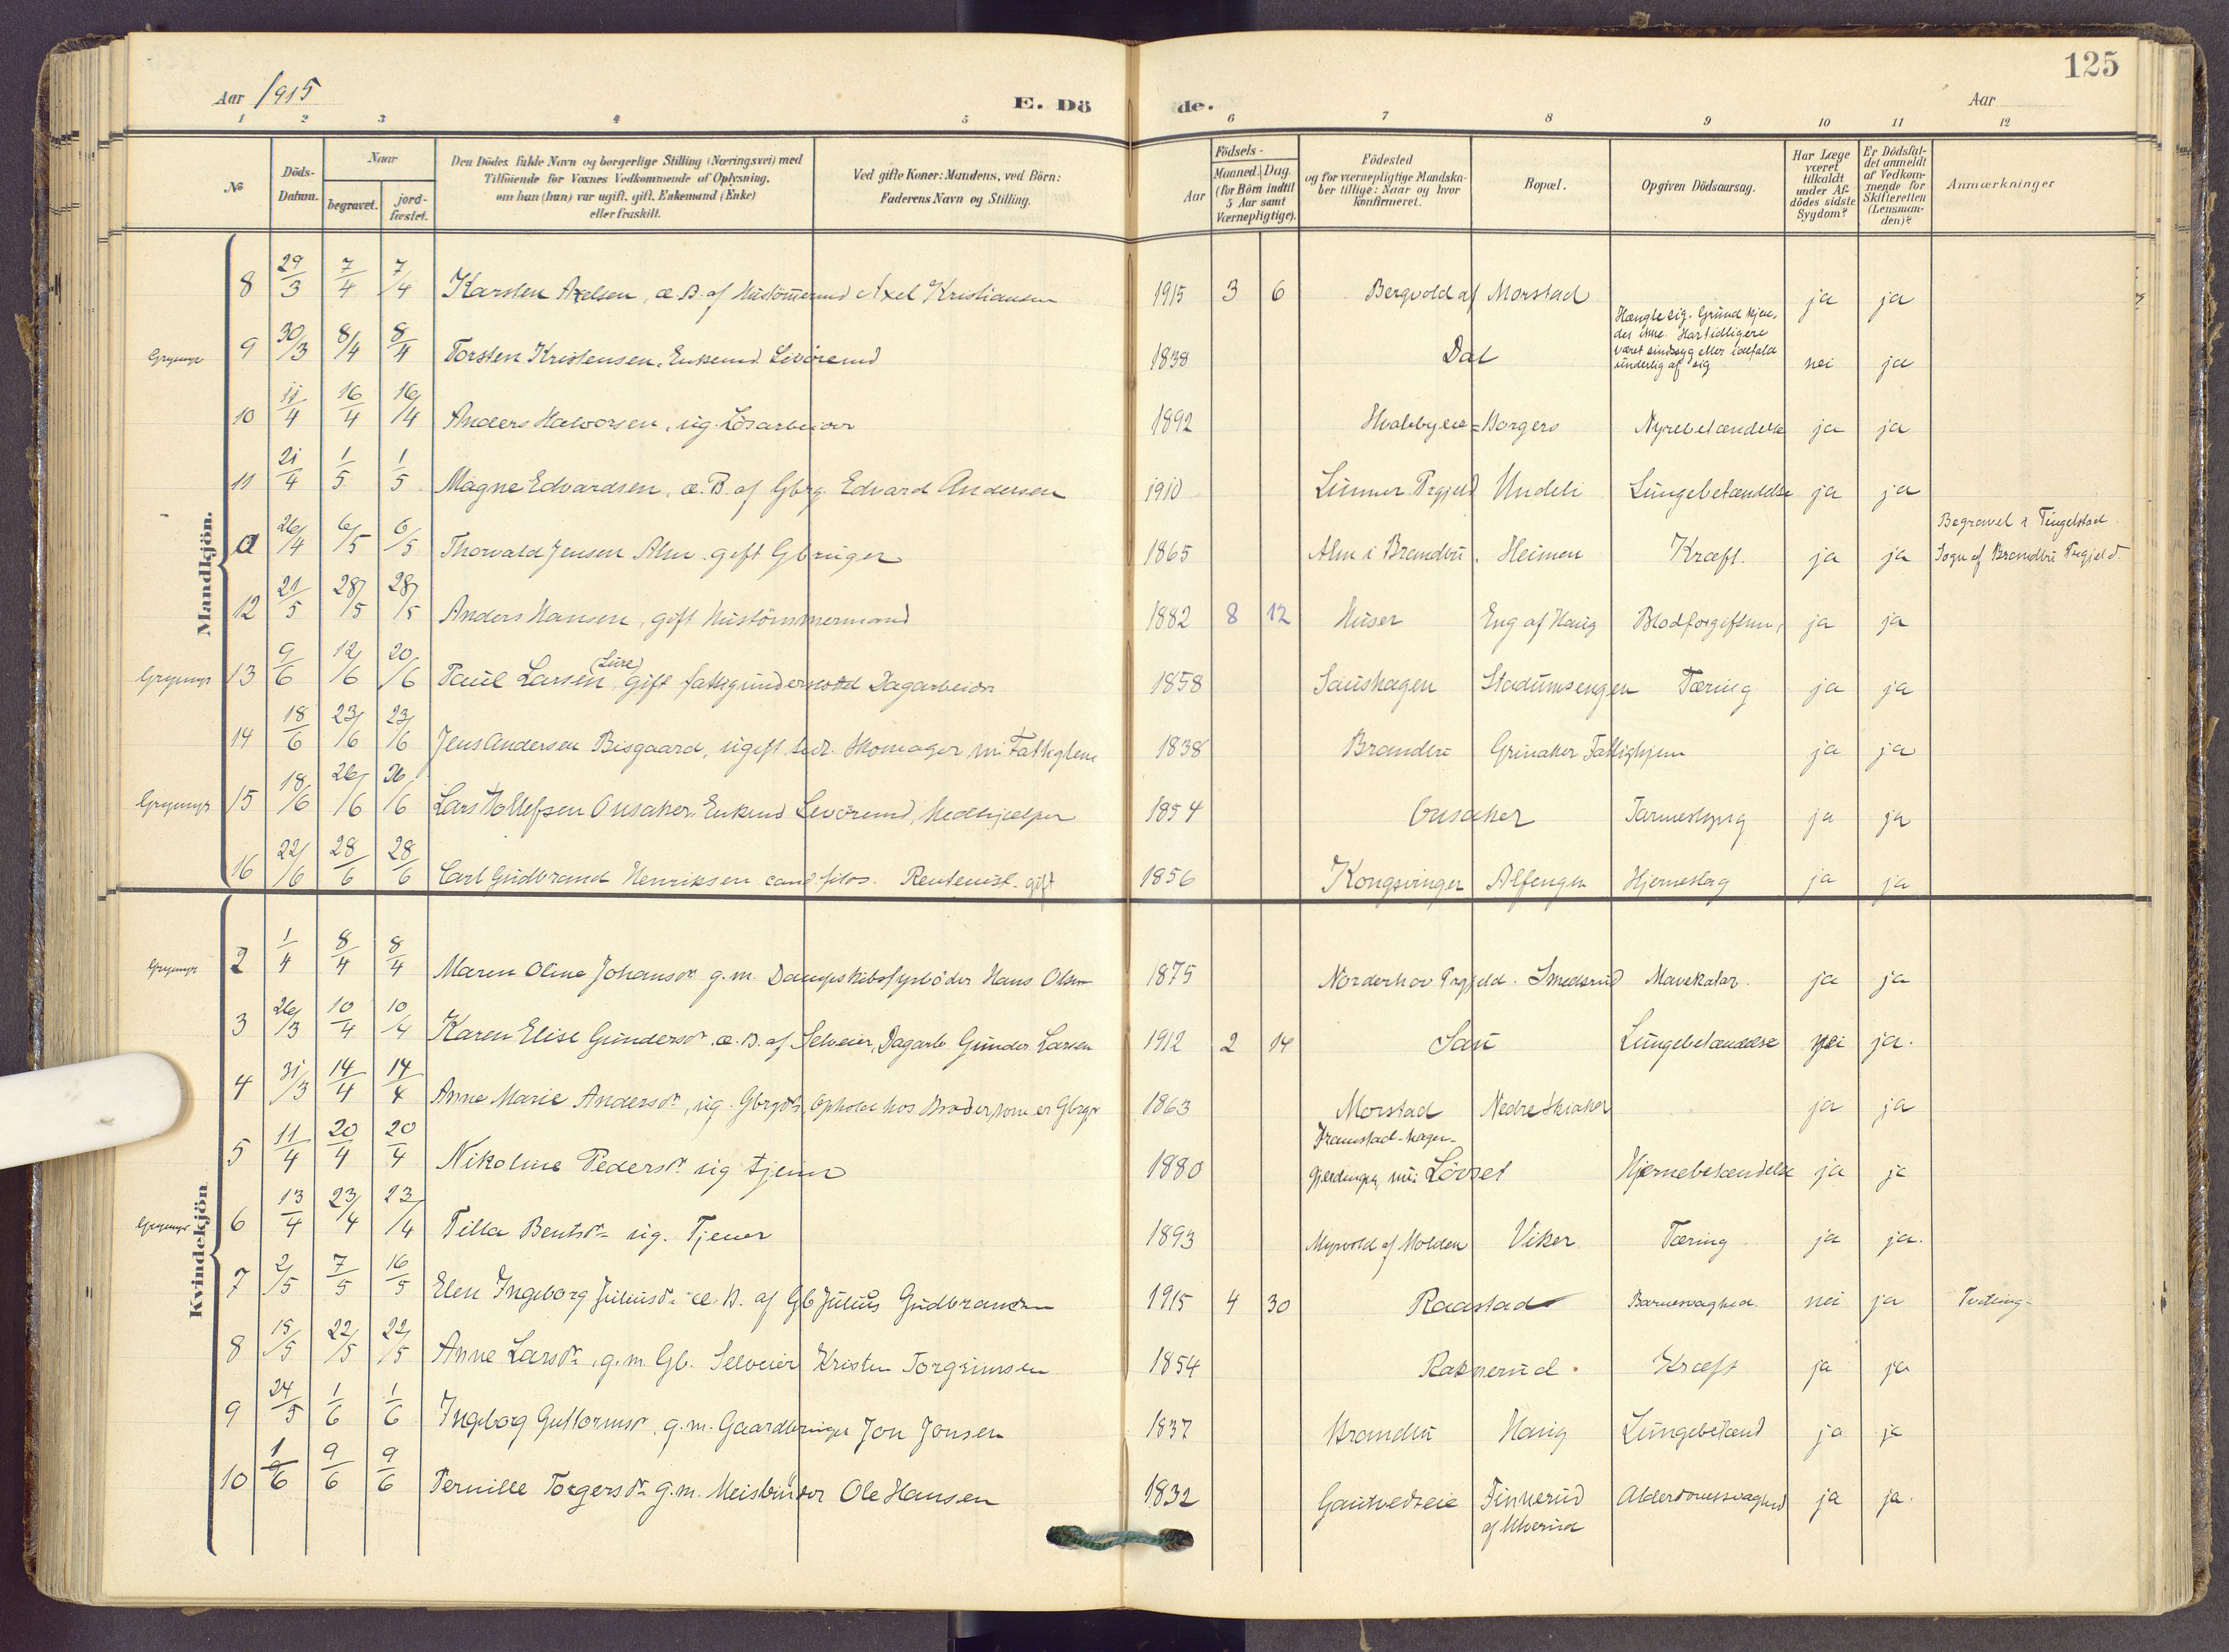 125
Aar 1915
E. Dö de.
Aar
1 2 3 4 5 6 7 8 9 10 11 12
No
Döds-Datum.
Naar
begravet.
jordfæstet.
Den Dödes fulde Navn og borgerlige Stilling (Næringsvei) med
Tilföiende for Voxnes Vedkommende af Oplysning,
om han (hun) var ugift, gift, Enkemand (Enke)
eller fraskilt.
Ved gifte Koner: Mandens, ved Börn:
Faderens Navn og Stilling.
Födsels-
Aar
Maaned. Dag.
(for Börn indtil
5 Aar samt
Værnepligtige).
Födested
og for værnepligtige Mandska-
ber tillige: Naar og hvor
konfirmeret.
Bopæl.
Opgiven Dödsaarsag.
Har Læge
været
tilkaldt
under Af-
dödes sidste
Sygdom?
Er Dödsfal-
det anmeldt
af Vedkom-
mende for
Skifteretten
(Lensman-
den)?
Anmærkninger
Mandkjön.
8 29/3 7/4 7/4 Karsten Axelsen, æ. B. af Axel Kristiansen 1915 3 6 Bergvold af Morstad ja ja
Hængte sig. Grund kjen-
des ikke. Har tidligere
været sindssyg eller ialfald
underlig af sig
Grymyr 9 30/3 8/4 8/4 Torsten Kristensen, Enkemd. 1838 Dal nei ja
10 11/4 16/4 16/4 Anders Halvorsen, ug. Lösarbeider 1892 Borgers Nyrebetændelse ja ja
11 21/4 1/5 1/5 Magne Edvardsen, æ. B. af Gbrg. Edvard Andersen 1910 Lunner Prgjeld Undeli Lungebetændelse ja ja
Begravet i Tingelstad
a 26/4 6/5 6/5 Thorvald Jensen Alm. gift Gbruger 1865 Alm i Brandbu. Heimen Kræft. ja ja Sogn af Brandbu Prgjeld.
12 21/5 28/5 28/5 Anders Hansen, gift Hustömmermand 1882 8 12 Huser Eng af Haug Blodforgiftn. ja ja
(Lure)
Grymyr 13 9/6 12/6 20/6 Paul Larsen, gift fattigunderstöttd Dagarbeider 1858 Saushagen Stadumsengen Tæring ja ja
14 18/6 23/6 23/6 Jens Andersen Bisgaard, ugift Skomager 1838 Brandbu Grinaker Fattighjem ja ja
Grymyr 15 18/6 26/6 26/6 Lars Tollefsen Onsaker, Enkemd Medhjælper 1854 Onsaker Tarmeslyng ja ja
16 22/6 28/6 28/6 Carl Gudbrand Henriksen cand. filos. Rentenist. gift 1856 Kongsvinger Alfengen Hjerneslag ja ja
Kvindekjön
Grymyr 2 1/4 8/4 8/4 Maren Oline Johansdr. g. m. Dampskibsfyrböder Hans Olsen 1875 Norderhov Prgjeld. Smedsrud Mavekatar. ja ja
3 26/3 10/4 10/4 Karen Elise Gundersdr. æ. B. af Selveier, Dagarb. Gunder Larsen 1912 2 14 Sau Lungebetændelse nei ja.
4 31/3 14/4 14/4 Anne Marie Andersdr., ug. Gbrgdtr. Ophold hos Broder, som er Gbrgr 1863 Morstad Nedre Skiaker ja ja
Framstad-hagen-
5 11/4 20/4 20/4 Nikoline Pedersdr. ug tjener 1880 Lövset Hjernebetændelse ja ja
Grymyr 6 13/4 23/4 23/4 Tilla Bentsdr. ug. Tjener 1893 Myrvold af Molden Viker Tæring ja ja.
7 2/5 7/5 16/5 Elen Ingeborg Juliusdr. æ. B. af Gb Julius Gudbrandsen 1915 4 30 Raastad Barnesvaghed. nei ja Tvilling.
8 15/5 22/5 22/5 Anne Larsdr. g. m. Gb. Selveier Kristen Torgrimsen 1854 Raknerud. Kræft ja ja
9 24/5 1/6 1/6 Ingeborg Guttormsdr. g. m. Gaardbruger Jon Jonsen 1837 Brandbu Haug Lungebetænd ja ja
10 1/6 9/6 9/6 Pernille Torgersdr. g. m. Ole Hansen 1832 Gautvedteie Finnerud Alderdomssvaghed ja ja.
af Ulverud